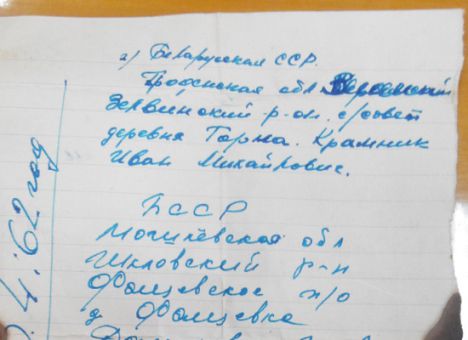 а) Беларусская ССР.
обл
Зельвинский р-он. с/совет
деревня Горна. Крамник
Иван Михайлович.
БССР
Могилёвская обл
Шкловский р-н
Фащевское п/о
д Фащевка
4. 62 год